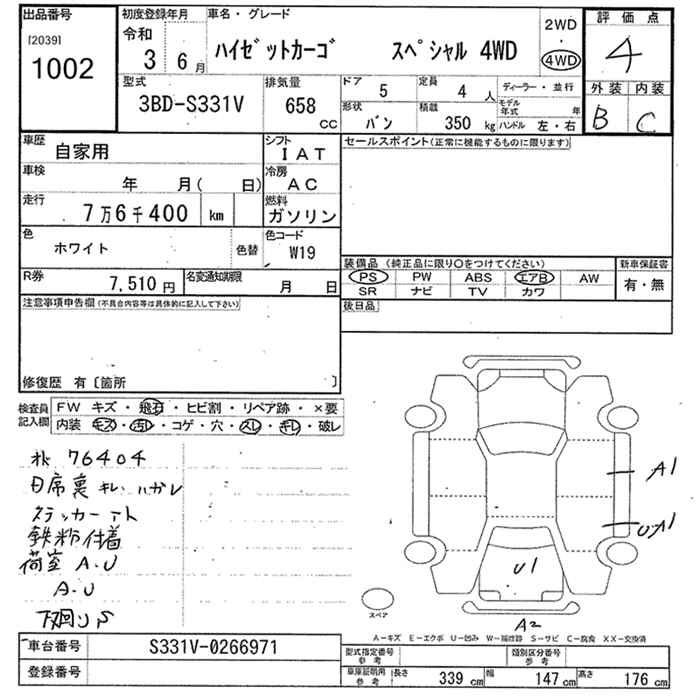 出品番号
[2039]
1002
初度登録年月
令和
3 6月
車名・グレード
ハイゼットカーゴ スペシャル 4WD
2WD
・
4WD
評価点
4
外装 内装
B C
型式
3BD-S331V
排気量
658
cc
ドア 5
定員 4 人
ディーラー・並行
形状 バン
積載 350 kg
モデル年式 年
ハンドル 左・右
車歴
自家用
シフト
IAT
車検
年 月( 日)
冷房
AC
走行
7万6千400 km
燃料
ガソリン
色
ホワイト
色替
色コード
W19
R券
7,510 円
名変通知期限
月 日
セールスポイント(正常に機能するものに限ります)
装備品 (純正品に限り○をつけてください)
PS PW ABS エアB AW
SR ナビ TV カワ
新車保証書
有・無
後日品
注意事項申告欄(不具合内容等は具体的に記入して下さい)
修復歴 有〔箇所 〕
検査員記入欄
FW キズ・飛石・ヒビ割・リペア跡・×要
内装 キズ・汚レ・コゲ・穴・スレ・キレ・破レ
76404
日席裏キレ ハガレ
ステッカーアト
鉄粉付着
荷室 A.U
A.U
下廻りS
A1
UA1
U1
A2
スペア
A-キズ E-エクボ U-凹み W-補修跡 S-サビ C-腐食 XX-交換済
車台番号
S331V-0266971
登録番号
型式指定番号
参考
類別区分番号
参考
車庫証明用
参考
長さ 339 cm
幅 147 cm
高さ 176 cm